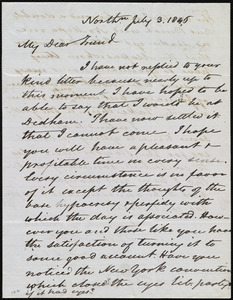 Northn July 3. 1845
My Dear Friend
I have not replied to your
kind letter because nearly up to
this moment I have hoped to be
able to say that I would be at
Dedham. I have now settled it
that I cannot come. I hope
you will have a pleasant &
profitable time in every sense.
Every circumstance is in favor
of it except the thoughts of the
base hypocrisy & perfidy with
which the day is associated. How
ever you and those like you have
the satisfaction of turning it to
some good account. Have you
noticed the New York convention
which closed the eyes
of it dead eyes?